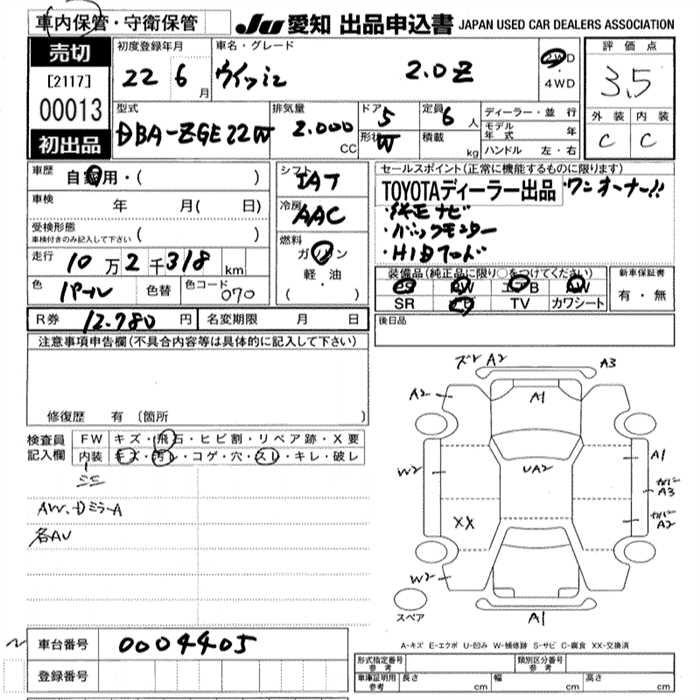 車内保管・守衛保管
JU 愛知 出品申込書 JAPAN USED CAR DEALERS ASSOCIATION
売切
[2117]
00013
初出品
初度登録年月
22 6月
車名・グレード
ウイッシュ 2.0Z
2WD
・
4WD
評価点
3.5
外装 内装
C C
型式
DBA-ZGE22W
排気量
2.000
CC
ドア 5
形状 W
定員 6人
積載 kg
ディーラー・並行
モデル年式 年
ハンドル 左・右
車歴
自家用・( )
車検
年 月( 日)
受検形態
車検付きのみ記入して下さい ( )
走行 10万2千318km
色 パール 色替 色コード 070
R券 12.780円 名変期限 月 日
シフト IAT
冷房 AAC
燃料
ガソリン
軽・油
( )
セールスポイント(正常に機能するものに限ります)
TOYOTAディーラー出品 ワンオーナー!!
・純正ナビ
・バックモニター
・HIDフード
装備品(純正品に限り○をつけてください)
PS PW エアB AW
SR ナビ TV カワシート
新車保証書
有・無
後日品
注意事項申告欄(不具合内容等は具体的に記入して下さい)
修復歴 有 (箇所 )
検査員記入欄
FW キズ・飛石・ヒビ割・リペア跡・X要
内装 キズ・汚レ・コゲ・穴・スレ・キレ・破レ
AW、DミラーA
各AU
ズレ A2 A3
A2 A1
A1
W2 UA2 カバーA3
XX カバーA2
W2
A1
スペア
A-キズ E-エクボ U-凹み W-補修跡 S-サビ C-腐食 XX-交換済
車台番号 0004405
登録番号
形式指定番号 参考
類別区分番号 参考
車庫証明用 参考 長さ cm 幅 cm 高さ cm